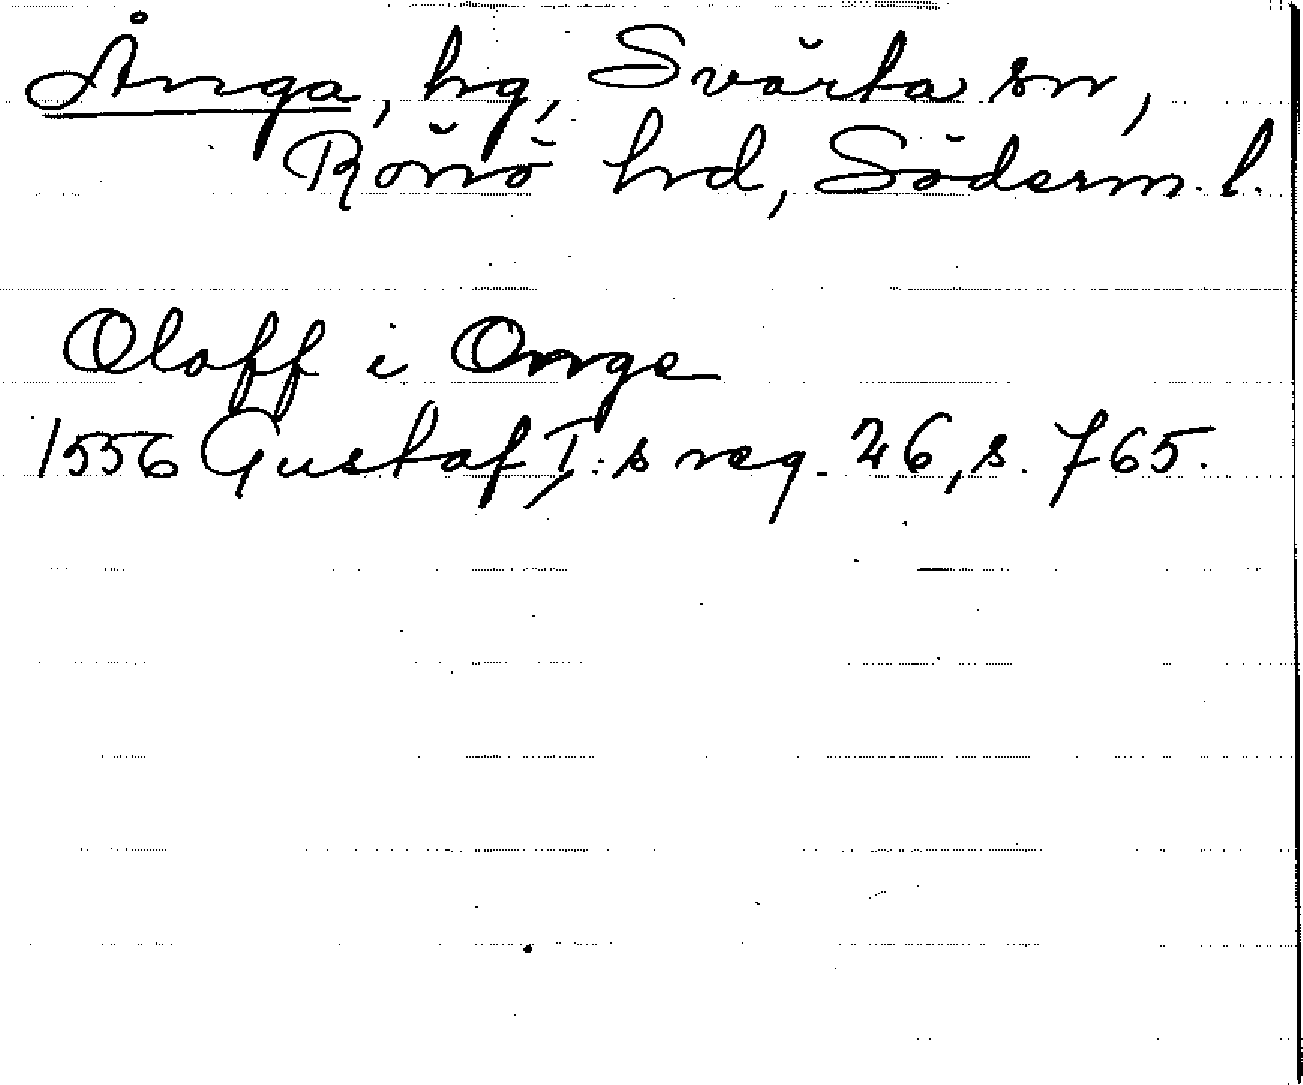 Ånga, hg, Svärta sn,
Rönö hd, Söderm. l.
Oloff i Onge
1556 Gustaf I:s reg. 26, s. 765.